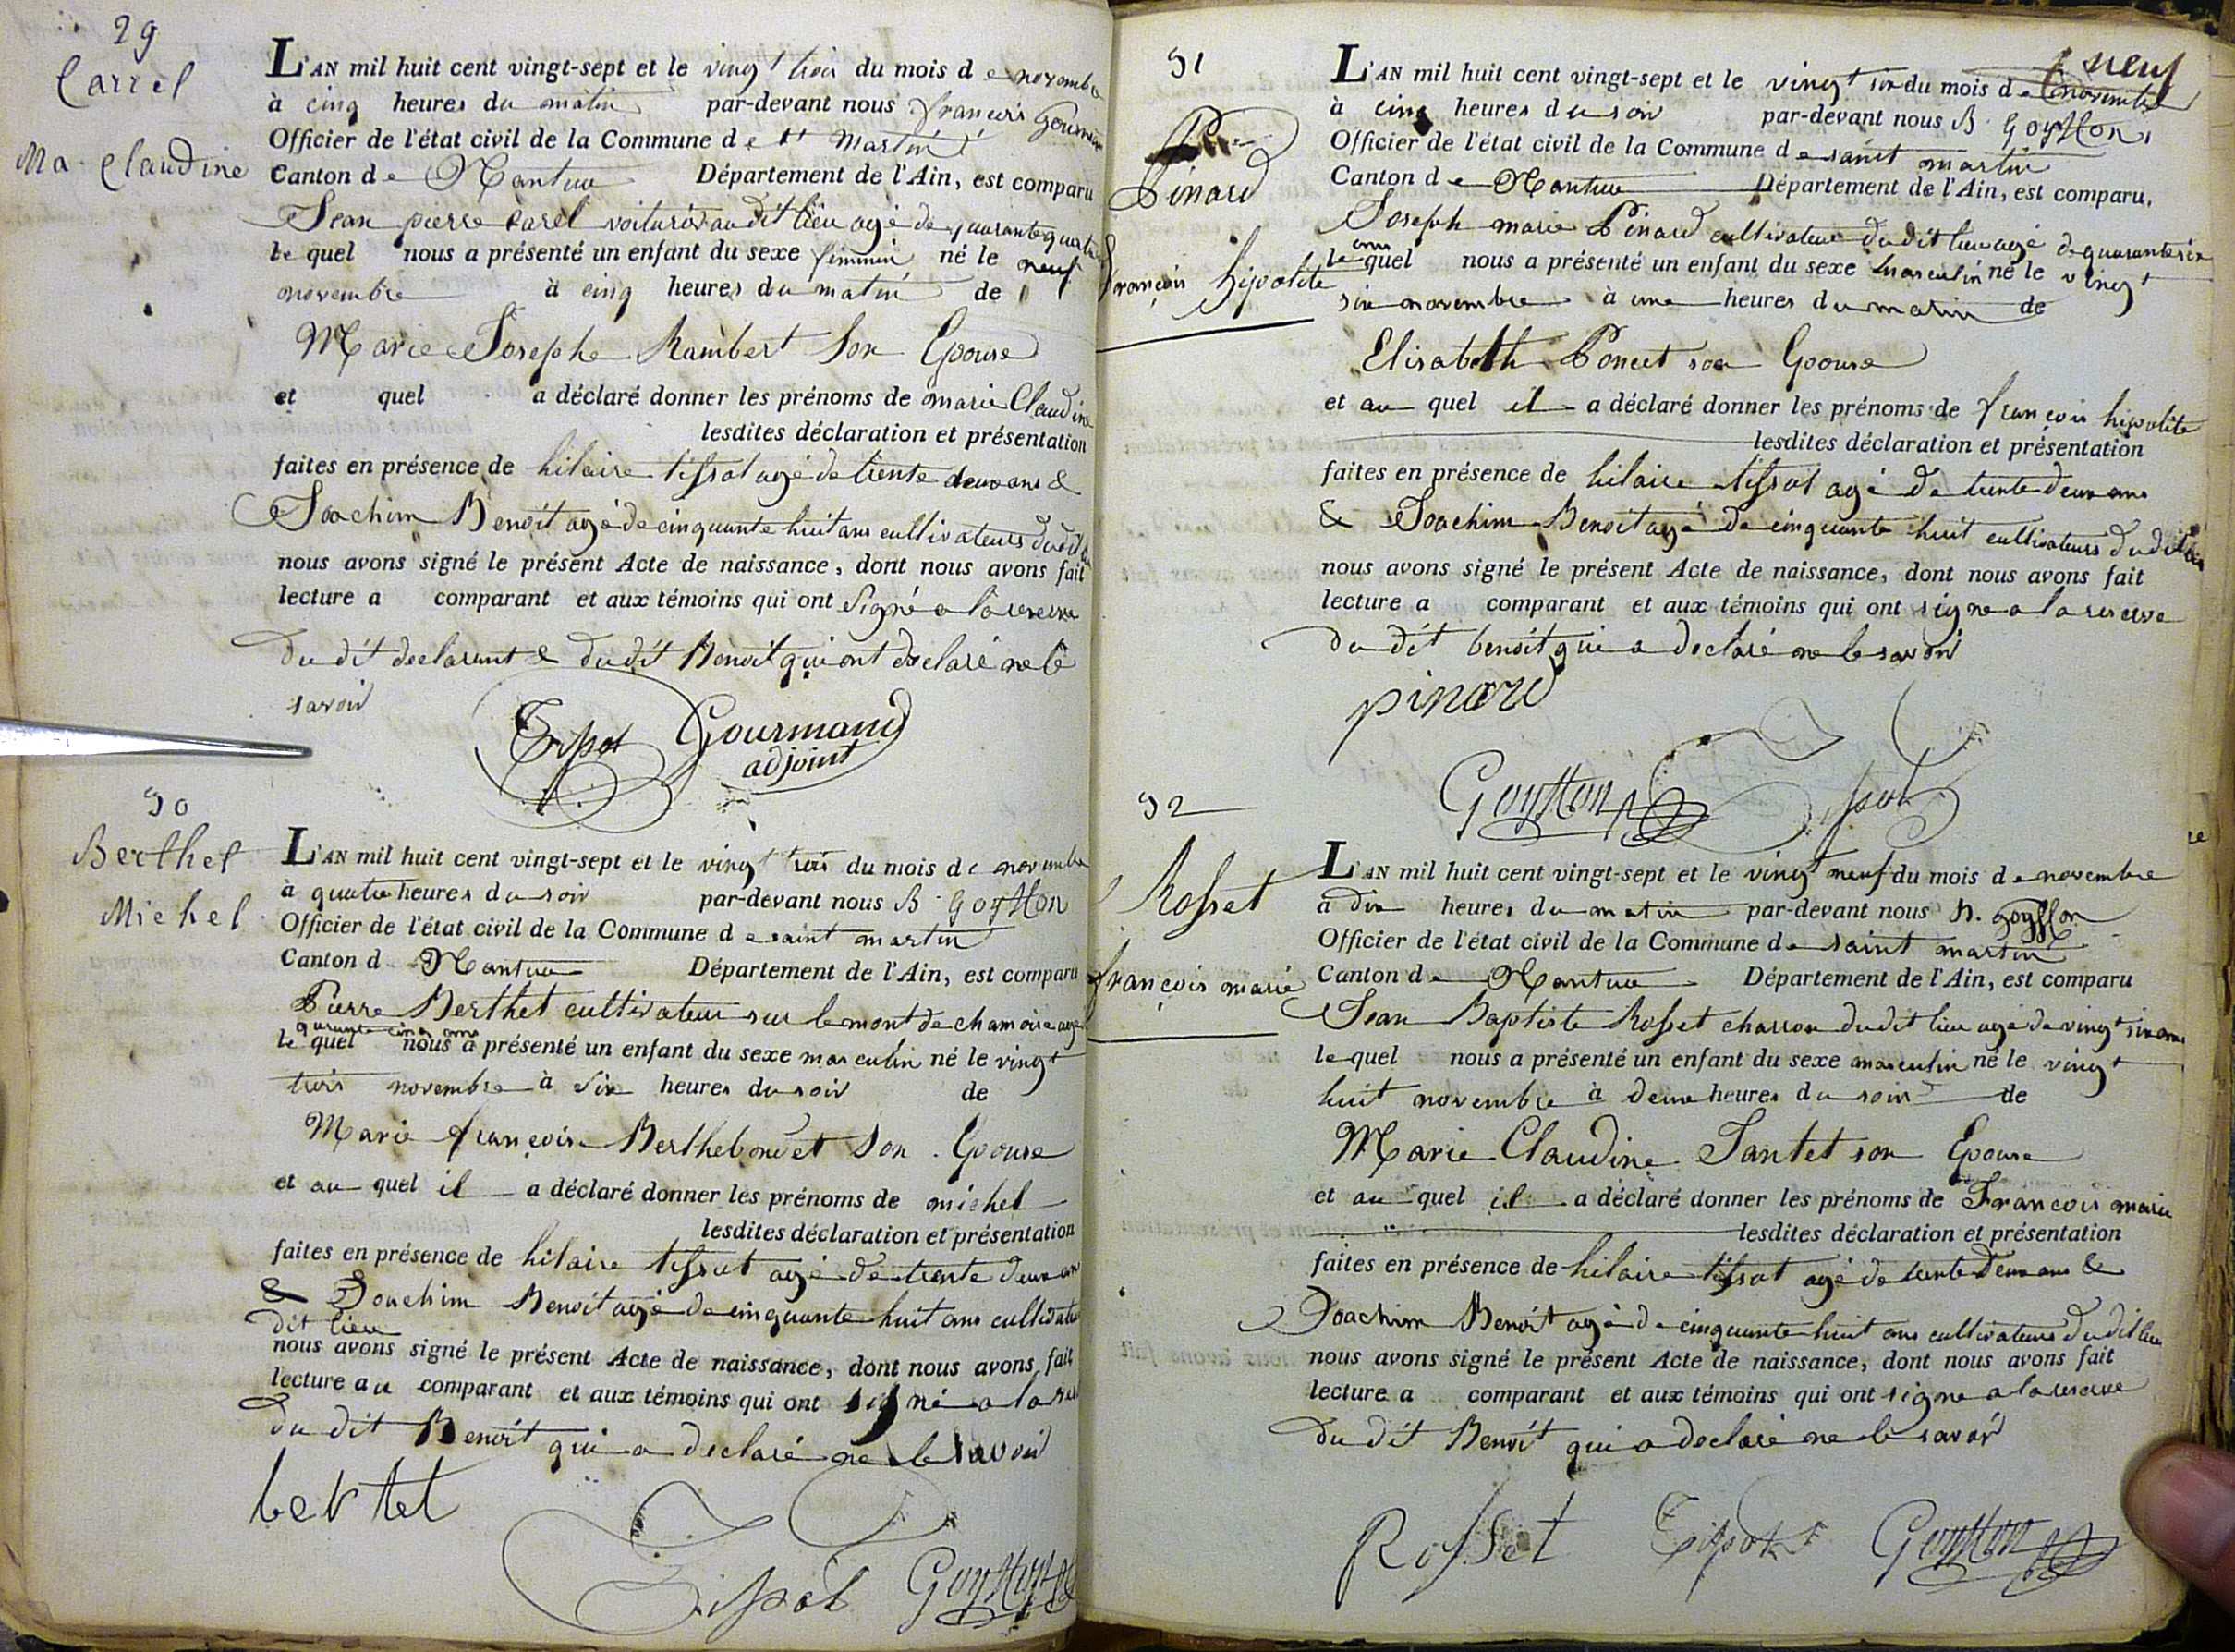 29
Carrel
Ma. Claudine
L'AN mil huit cent vingt-sept et le vingt trois du mois de novembre
à cinq heures du matin par-devant nous françois Gourmand
Officier de l'état civil de la Commune de st martin
Canton de Nantua Département de l'Ain, est comparu
Jean pierre Carel voiturier au dit lieu agé de quarante quatre
le quel nous a présenté un enfant du sexe féminin né le neuf
novembre à cinq heures du matin de
Marie Josephe Rambert Son Epouse
et quel a déclaré donner les prénoms de marie Claudine
lesdites déclaration et présentation
faites en présence de hilaire tissot agé de trente deux ans &
Joachim Benoit agé de cinquante huit ans cultivateurs dudit lieu
nous avons signé le présent Acte de naissance, dont nous avons fait
lecture a comparant et aux témoins qui ont Signé a la reserve
du dit declarant & du dit Benoit qui ont declaré ne le
savoir
Tissot Gourmand
adjoint
30
Berthet
Michel
L'AN mil huit cent vingt-sept et le vingt trois du mois de novembre
à quatre heures du soir par-devant nous B. Goyffon
Officier de l'état civil de la Commune de saint martin
Canton d Nantua Département de l'Ain, est comparu
Pierre Berthet cultivateur sur le mont de chamoise agé
quarante cinq ans
le quel nous a présenté un enfant du sexe masculin né le vingt
trois novembre à Six heures du soir de
Marie françoise Berthet Son Epouse
et au quel il a déclaré donner les prénoms de michel
lesdites déclaration et présentation
faites en présence de hilaire tissot agé de trente deux ans
& Joachim Benoit agé de cinquante huit ans cultivateurs
dit lieu
nous avons signé le présent Acte de naissance, dont nous avons fait
lecture au comparant et aux témoins qui ont signé a la
du dit Benoit qui a declaré ne le savoir
bertet
Tissot Goyffon
31
Pinard
françois hipolite
L'AN mil huit cent vingt-sept et le vingt six du mois de novembre neuf
à cinq heures du soir par-devant nous B. Goyffon
Officier de l'état civil de la Commune de saint martin
Canton de Nantua Département de l'Ain, est comparu,
Joseph marie Pinard cultivateur dudit lieu agé de quarante six
ans
le quel nous a présenté un enfant du sexe masculin né le vingt
six novembre à une heures du matin de
Elisabeth Poncet son Epouse
et au quel il a déclaré donner les prénoms de françois hipolite
lesdites déclaration et présentation
faites en présence de hilaire tissot agé de trente deux ans
& Joachim Benoit agé de cinquante huit cultivateurs dudit lieu
nous avons signé le présent Acte de naissance, dont nous avons fait
lecture a comparant et aux témoins qui ont signe a la reserve
du dit benoit qui a declaré ne le savoir
pinard
Goyffon Tissot
32
Rosset
françois marie
L'AN mil huit cent vingt-sept et le vingt neuf du mois de novembre
à dix heures du matin par-devant nous B. goyffon
Officier de l'état civil de la Commune de saint martin
Canton de Nantua Département de l'Ain, est comparu
Jean Baptiste Rosset charron dudit lieu agé de vingt six ans
le quel nous a présenté un enfant du sexe masculin né le vingt
huit novembre à deux heures du soir de
Marie Claudine Santet son Epouse
et au quel il a déclaré donner les prénoms de François marie
lesdites déclaration et présentation
faites en présence de hilaire tissot agé de trente deux ans &
Joachim Benoit agé de cinquante huit ans cultivateurs dudit lieu
nous avons signé le présent Acte de naissance, dont nous avons fait
lecture a comparant et aux témoins qui ont signe a la reserve
du dit Benoit qui a declaré ne le savoir
Rosset Tissot Goyffon